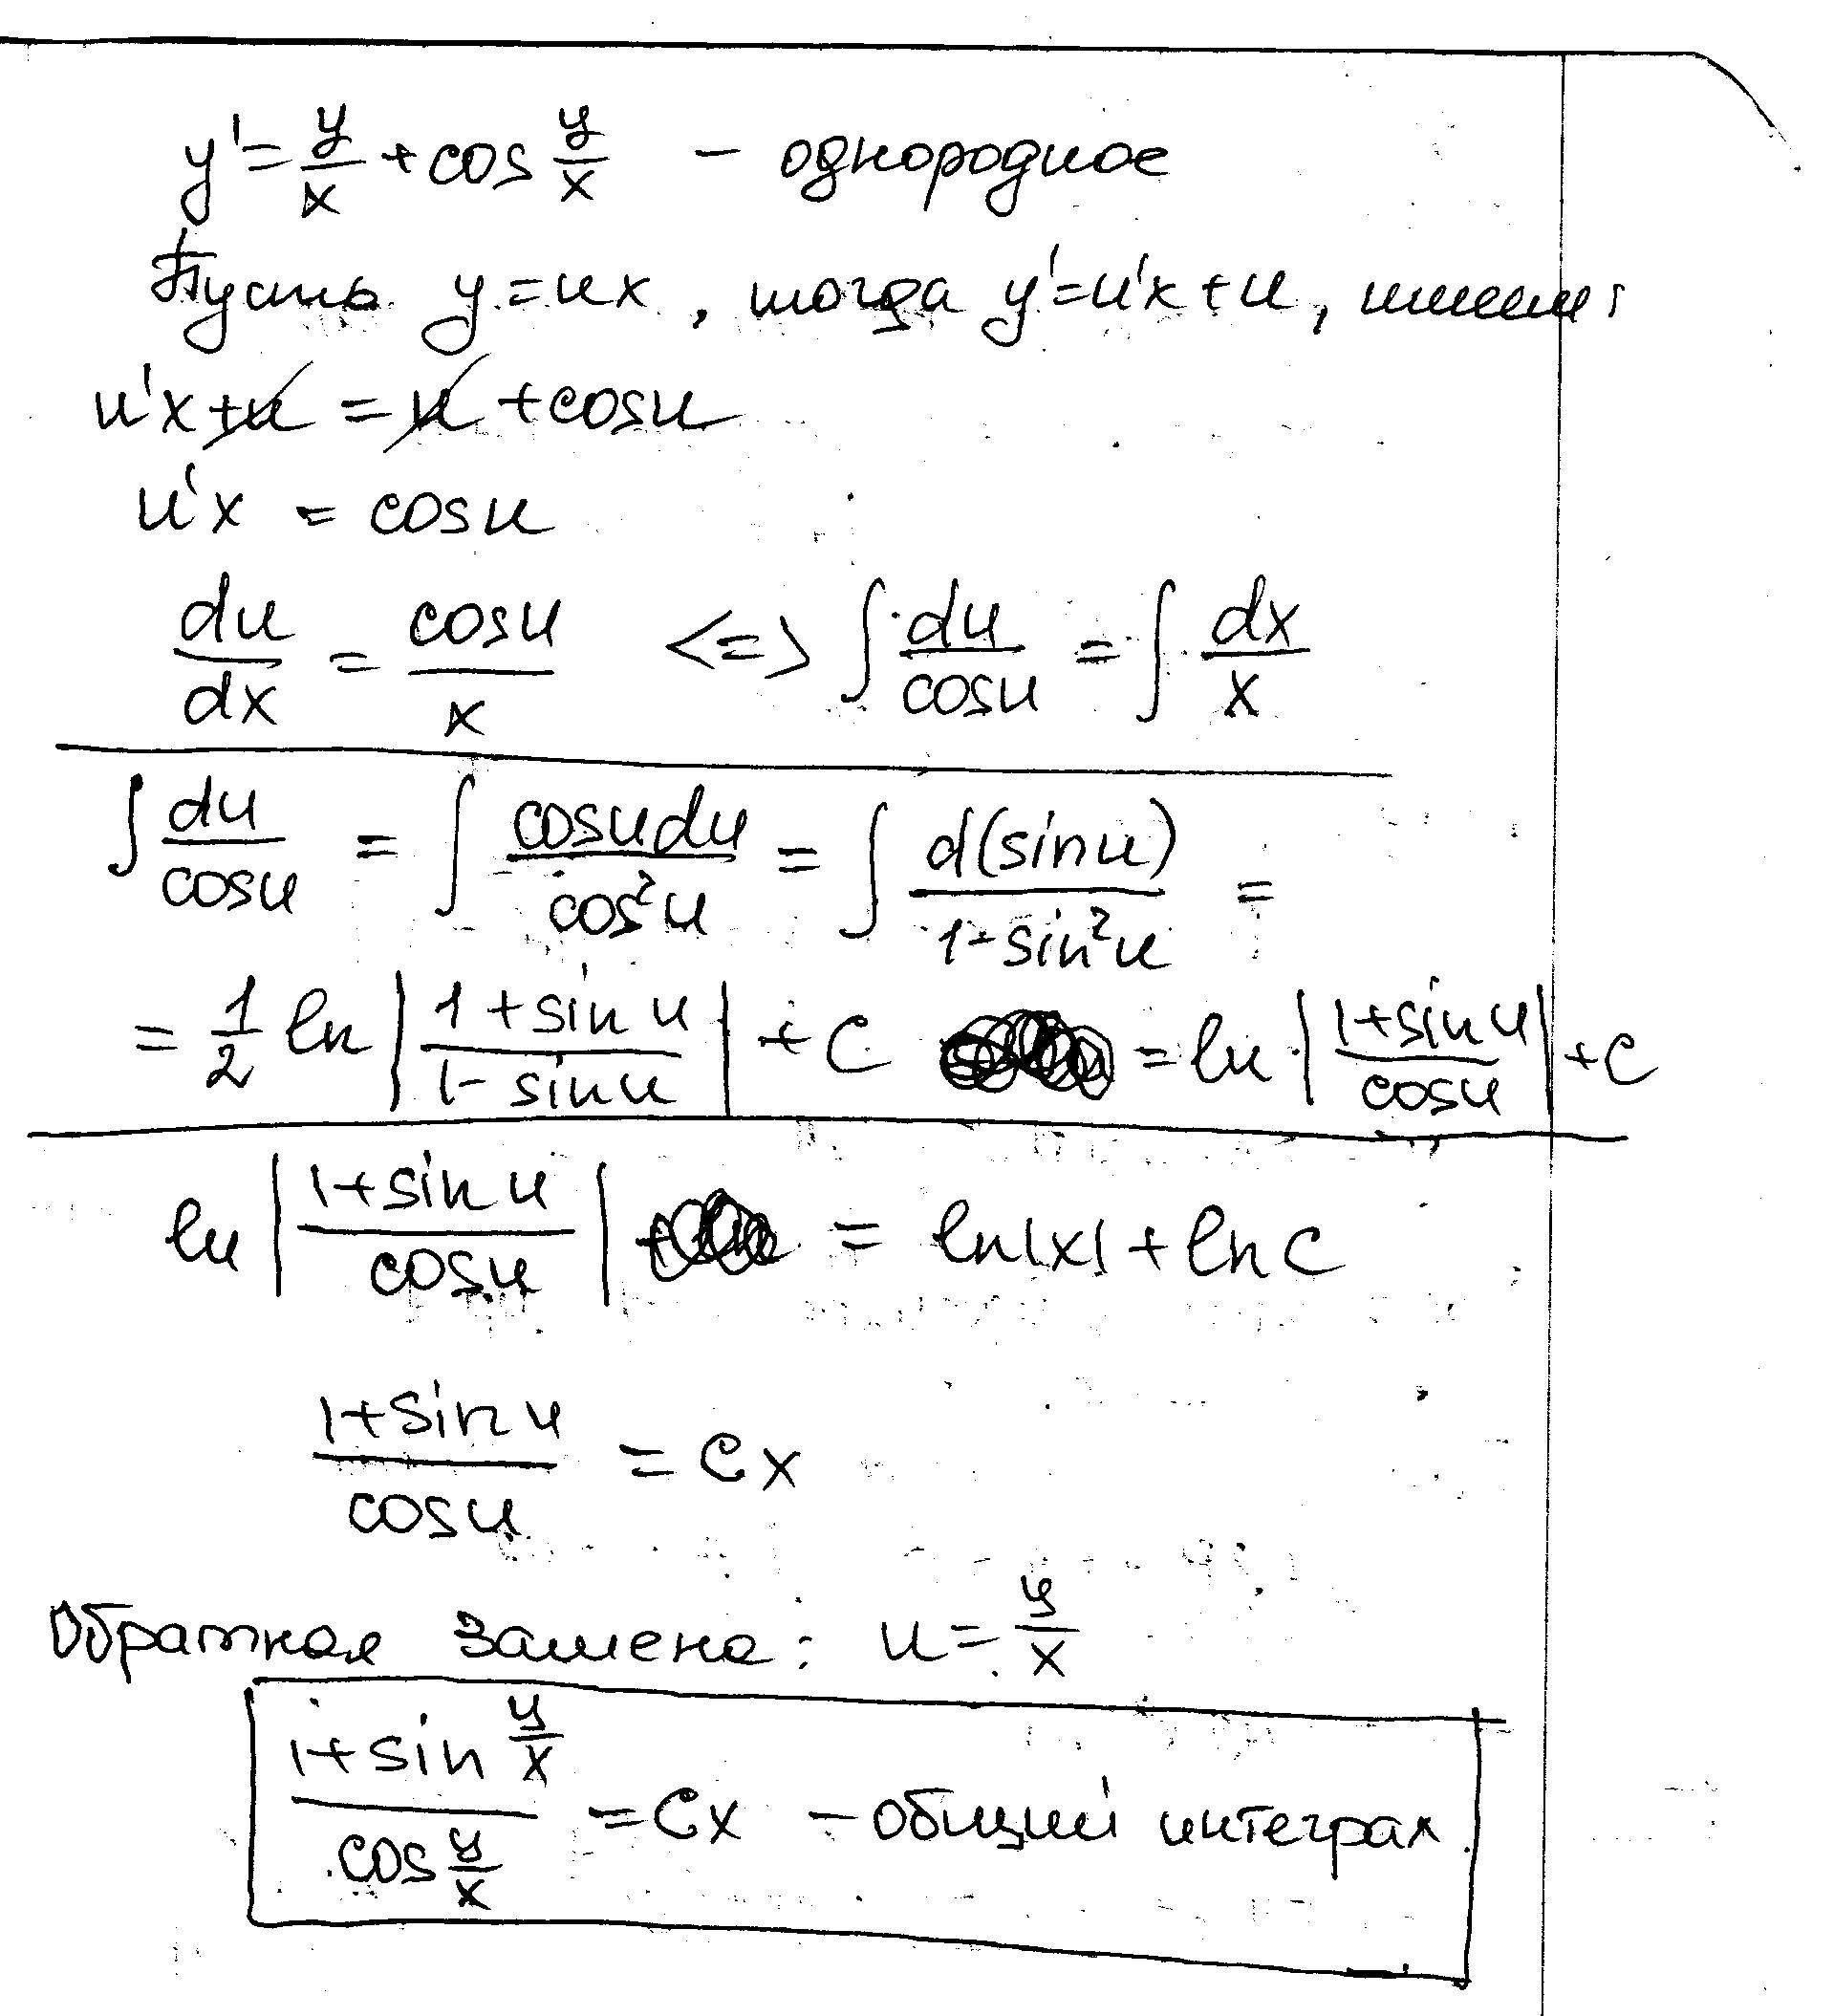 y' = y/x + cos y/x – однородное
Пусть y = ux, тогда y' = u'x + u, имеем:
u'x + u = u + cos u
u'x = cos u
du/dx = cos u / x <=> ∫ du/cos u = ∫ dx/x
∫ du/cos u = ∫ cos u du / cos² u = ∫ d(sin u) / 1 - sin² u =
= 1/2 ln | 1 + sin u / 1 - sin u | + C = ln | 1 + sin u / cos u | + C
ln | 1 + sin u / cos u | = ln|x| + ln C
1 + sin u / cos u = Cx
Обратная замена: u = y/x
1 + sin y/x / cos y/x = Cx – общий интеграл